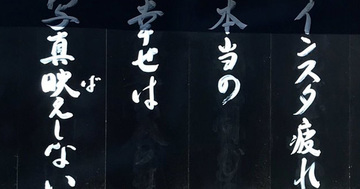 インスタ疲れ
本当の
幸せは
写真映えしない
ば